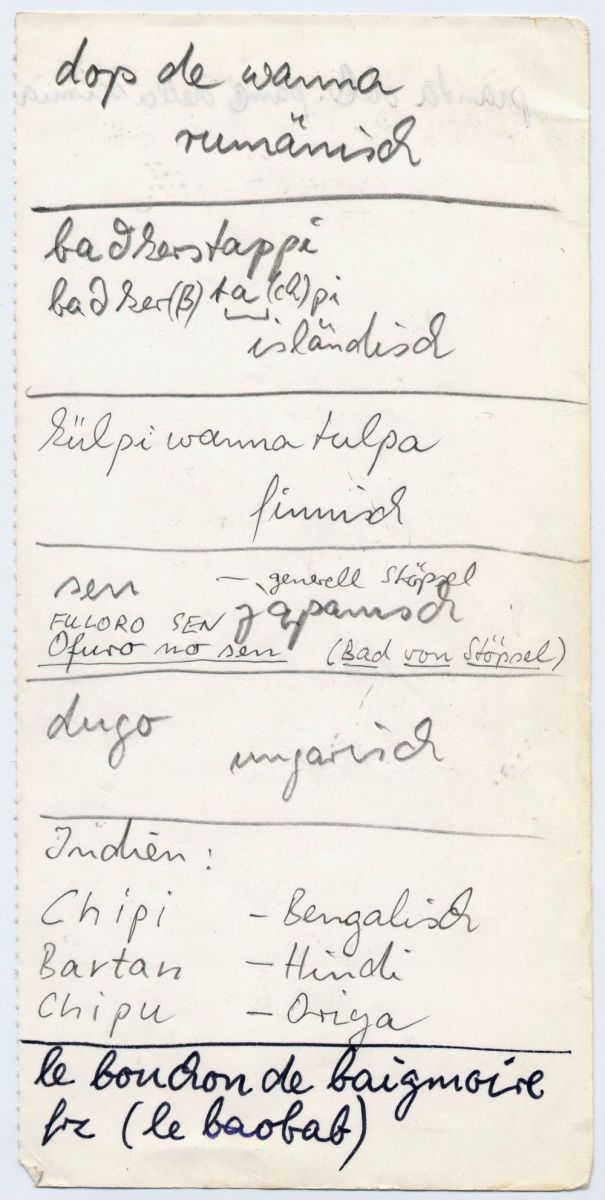 dop de wanna
rumänisch
baðkerstappi
baðker(ß) ta (ch)pi
isländisch
külpi wanna tulpa
finnisch
sen – generell Stöpsel
japanisch
FULORO SEN
Ofuro no sen (Bad von Stöpsel)
dugo
ungarisch
Indien:
Chipi – Bengalisch
Bartan – Hindi
Chipu – Origa
le bouchon de baignoire
frz (le baobab)